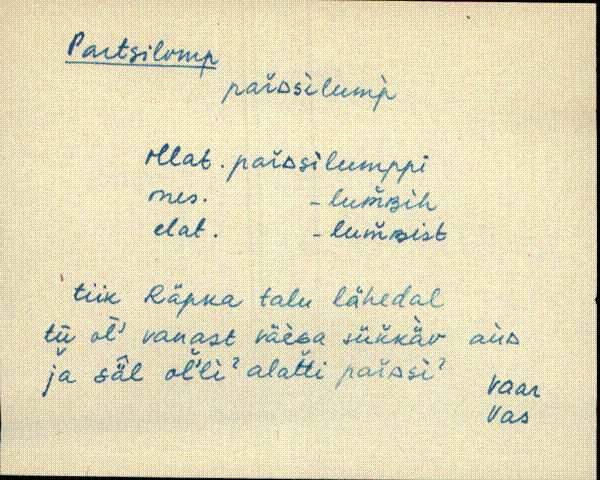 Partsilomp
paŕᴅsilump
illat. paŕᴅsilumppi
ines. -lum̌ʙih
elat. -lum̌ʙist
tiik Räpka talu lähedal
tū ol̄' vanast väèga sük̆kàv aùᴅ
ja säl ol̆'li' alat̆ti paŕᴅsi'
Vaar
Vas